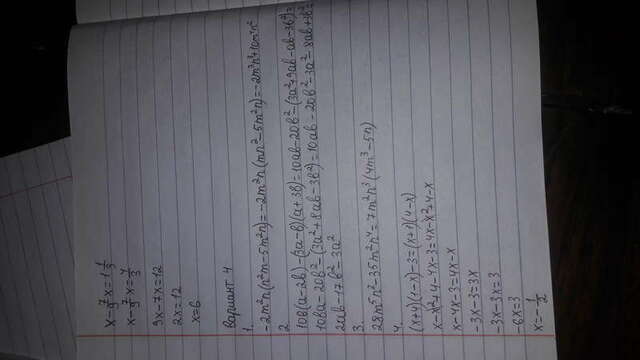 x - 7/9 x = 1 1/3
x - 7/9 x = 4/3
9x - 7x = 12
2x = 12
x = 6
Вариант 4
1.
-2m²n(n²m - 5m²n) = -2m²n(mn² - 5m²n) = -2m³n³ + 10m⁴n²
2.
10b(a - 2b) - (3a - b)(a + 3b) = 10ab - 20b² - (3a² + 9ab - ab - 3b²) =
10ba - 20b² - (3a² + 8ab - 3b²) = 10ab - 20b² - 3a² - 8ab + 3b² =
2ab - 17b² - 3a²
3.
28m⁵n² - 35m²n⁴ = 7m²n³(4m³ - 5n)
4.
(x+4)(1-x) - 3 = (x+1)(4-x)
x - x² + 4 - 4x - 3 = 4x - x² + 4 - x
x - 4x - 3 = 4x - x
-3x - 3 = 3x
-3x - 3x = 3
-6x = 3
x = -1/2